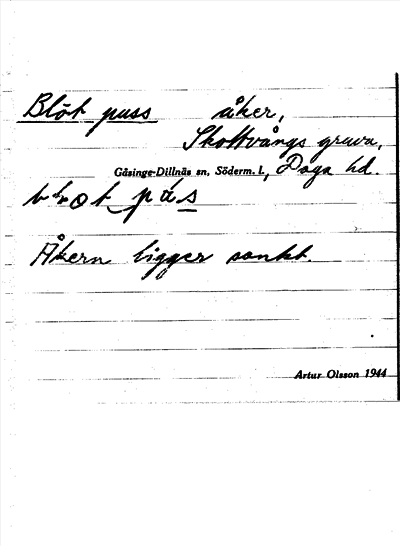 Blöt puss åker,
Skottvångs gruva,
Gåsinge-Dillnäs sn, Söderm. l., Daga hd.
Åkern ligger sankt.
Artur Olsson 1944